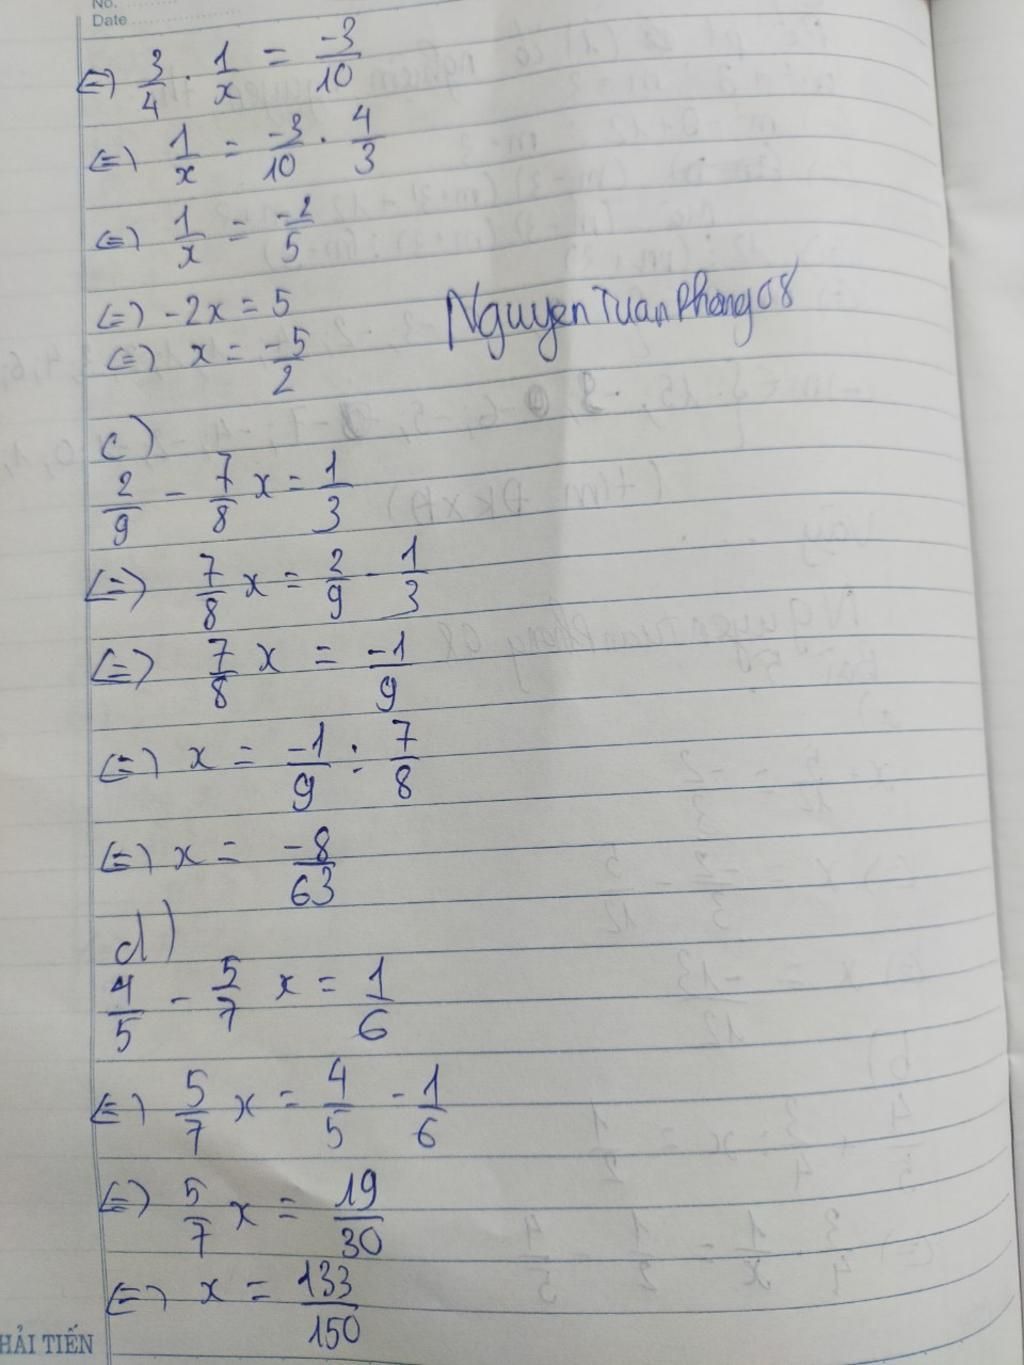 No.
Date
⇔ 3/4 . 1/x = -3/10
⇔ 1/x = -3/10 . 4/3
⇔ 1/x = -2/5
⇔ -2x = 5
⇔ x = -5/2
NguyenTuanPhong08
c)
2/9 - 7/8 x = 1/3
⇔ 7/8 x = 2/9 - 1/3
⇔ 7/8 x = -1/9
⇔ x = -1/9 : 7/8
⇔ x = -8/63
d)
4/5 - 5/7 x = 1/6
⇔ 5/7 x = 4/5 - 1/6
⇔ 5/7 x = 19/30
⇔ x = 133/150
HẢI TIẾN